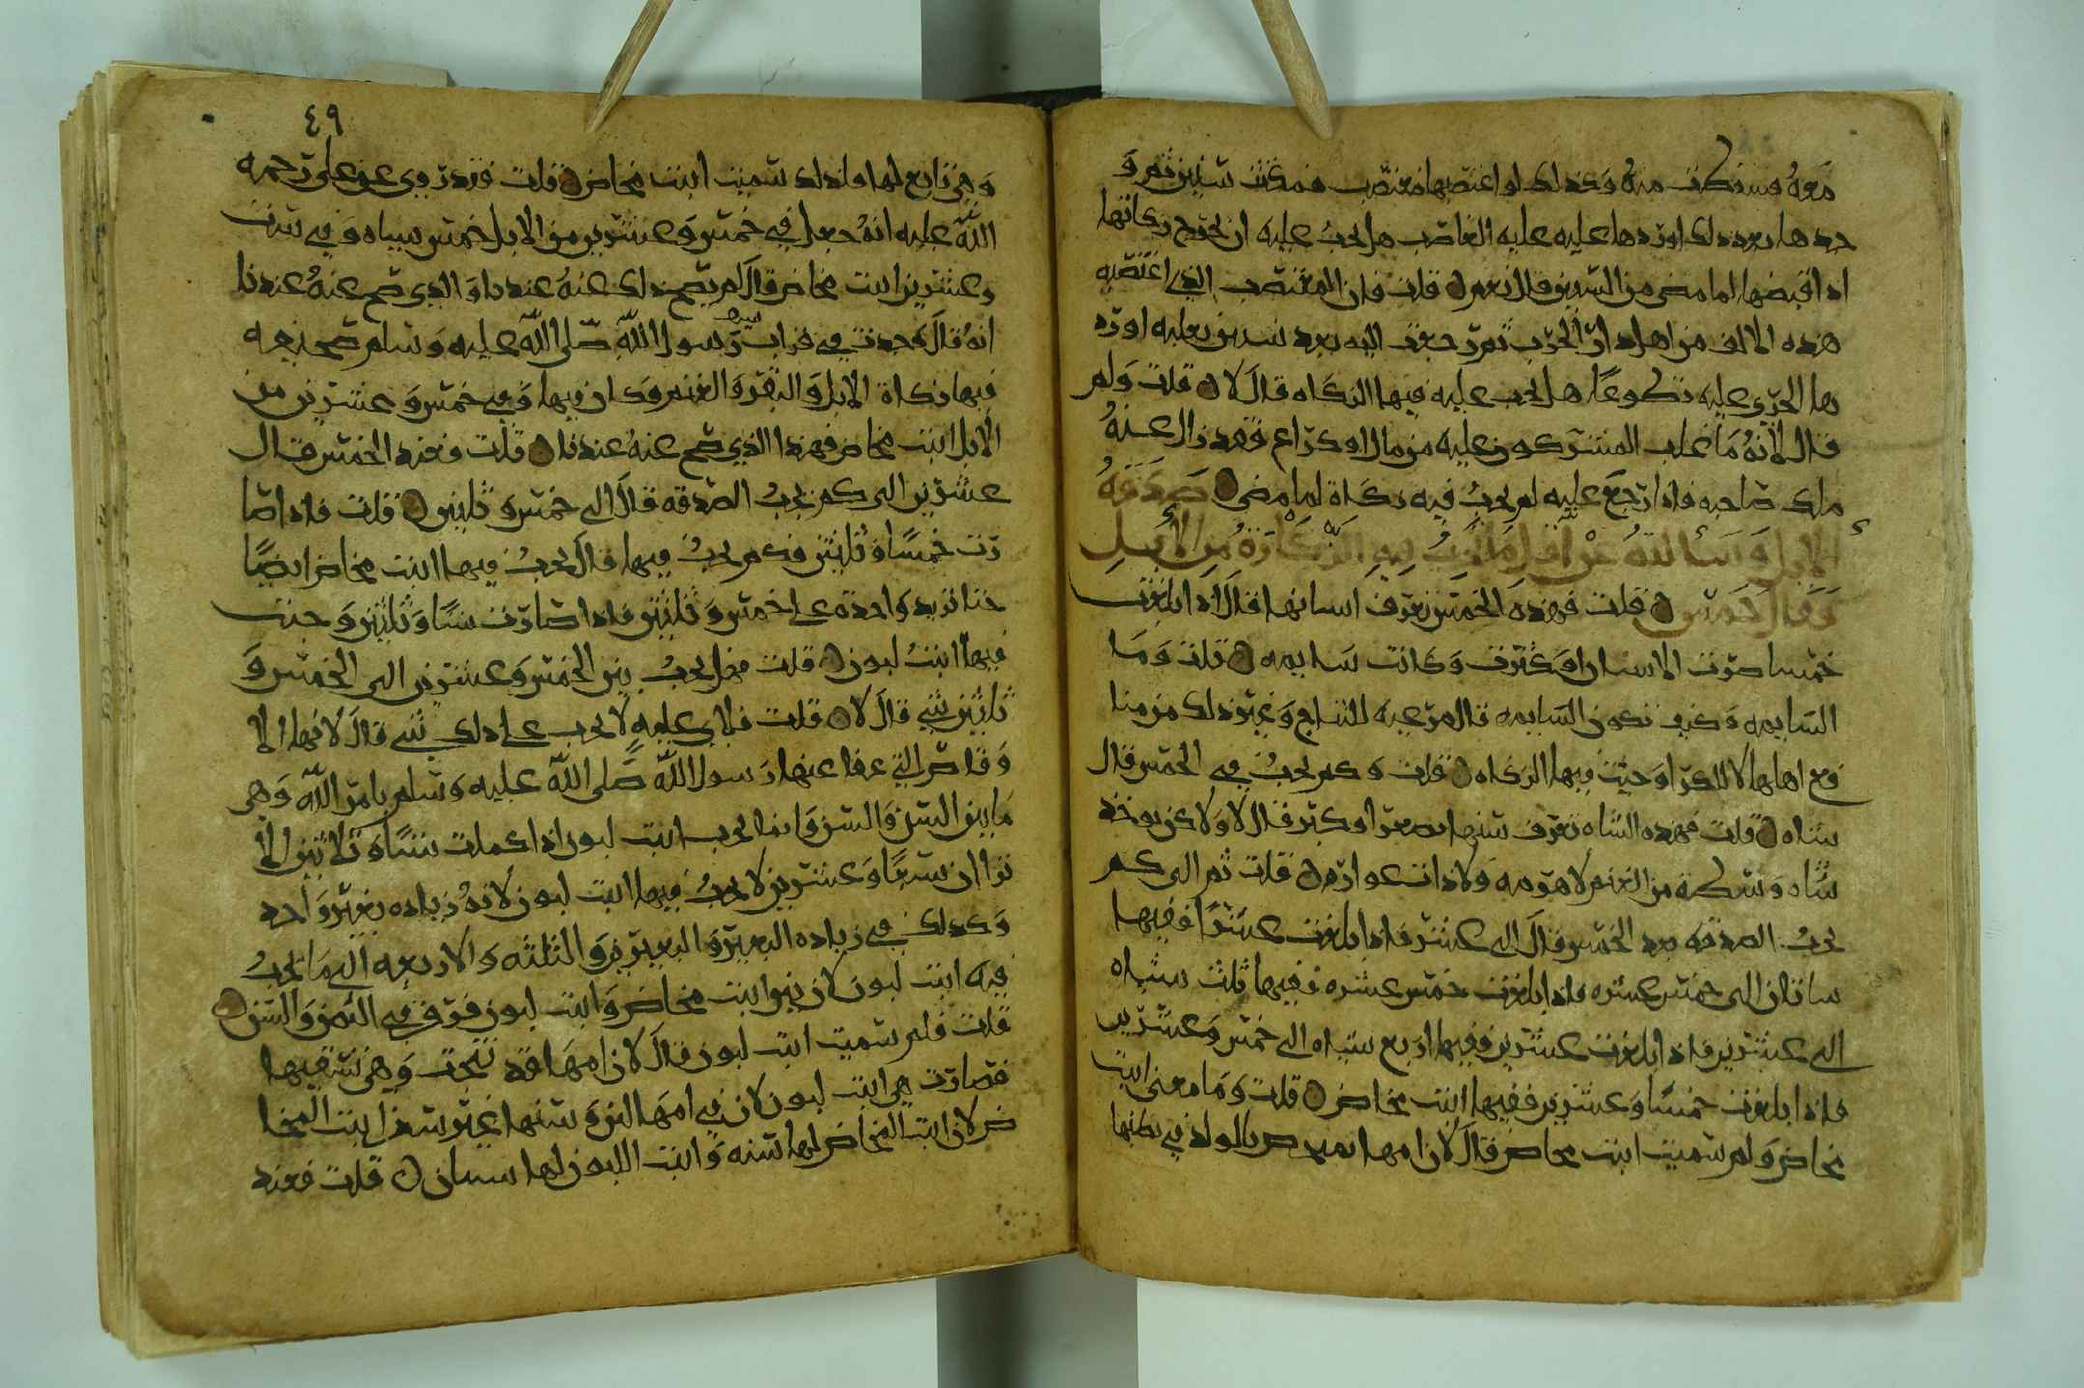 معه فسقطت منه وكذلك لو اغتصبها مغتصب فمكثت سنين ثم و
جدها بعد ذلك او ردها عليه عليه الغاصب هل يجب عليه ان يخرج زكاتها
اذا قبضها لما مضى من السنين قال نعم قلت فان المغتصب الذي اغتصبه
هذه الالف من اهل دار الحرب ثم رجعت اليه بعد سنين بغلبه او رد
ها الحربي عليه تطوعًا هل يجب عليه فيها الزكاه قال لا قلت ولم
قال لانهُ ما غلب المشركون عليه من مال او كراع فقد زال عنهُ
ملك صاحبه فاذا رجع عليه لم يجبُ فيه زكاة لما مضى صدقهُ
الابل وسألتهُ عن اقل ما يجبُ فيه الزكاةُ من الابل
وقال خمس قلت فهذه الخمس نعرف اسنانها قال اذا بلغت
خمسا صوت الاسنان او كثرت وكانت سايمه قلت وما
السايمه وكيف تكون السايمه قال مرعيه للنتاج وغير ذلك من منا
فع اهلها لا للكرا وجبت فيها الزكاه قلت وكم يجبُ في الخمس قال
شاه قلت فهذه الشاه نعرف سنها بصغر او كبر قال لا ولاكن يوخذ
شاه وسطة من الغنم لا هرمه ولا ذات عوار قلت ثم الى كم
يجبُ الصدقه بعد الخمس قال الى عشر فاذا بلغت عشرًا ففيها
ساتان الى خمس عشره فاذا بلغت خمس عشره ففيها ثلث شياه
الى عشرين فاذا بلغت عشرين ففيها اربع شياه الى خمس وعشرين
فاذا بلغت خمسًا وعشرين ففيها ابنت مخاض قلت وما معنى ابنت
مخاض ولم سميت ابنت مخاض قال لان امها تمخض بالولد في بطنها
٤٩
وهي تابع لها فلذلك سميت ابنت مخاض قلت فقد روي عن علي رحمه
الله عليه انهُ جعل في خمس وعشرين من الابل خمس شياه وفي ست
وعشرين ابنت مخاض قال لم يصح ذلك عنهُ عندنا والذي صح عنهُ عندنا
انهُ قال وجدت في قراب سيف رسول الله صلى الله عليه وسلم صحيفه
فيها زكاة الابل والبقر والغنم وكان فيها وفي خمس وعشرين من
الابل ابنت مخاض فهذا الذي صح عنهُ عندنا قلت فعند الخمس قال
عشرين الى كم يجبُ الصدقه قال الى خمس وثلثين قلت فاذا صا
رت خمسًا وثلثين فكم يجبُ فيها قال يجبُ فيها ابنت مخاض ايضًا
حتا تزيد واحدة على خمس وثلثين فاذا صارت ستًا وثلثين وجبت
فيها ابنتُ لبون قلت فهل يجبُ بين الخمس وعشرين الى الخمس و
ثلثين شي قال لا قلت فلاي عليه لا يجب على ذلك شي قال لانها الا
وقاص التي عفا عنها رسول الله صلى الله عليه وسلم بامر الله وهي
ما بين السن والسن وانما يجب ابنت لبون اذا كملت ستًا وثلاثين الا
ترا ان ستًا وعشرين لا يجبُ فيها ابنت لبون لانهُ زياده بعير واحد
وكذلك في زياده البعير والبعيرين والثلثه والاربعه الى ما يجبُ
فيه ابنت لبون لان بين ابنت مخاض وابنت لبون فرق في الثمن والسن
قلت فلم سميت ابنت لبون قال لان امها قد نتجت وهي تسقيها
فصارت هي ابنت لبون لان في امها لبن وسنها غير سن ابنت المخا
ض لان ابنت المخاض لها سنه وابنت اللبون لها سنتان قلت فعند